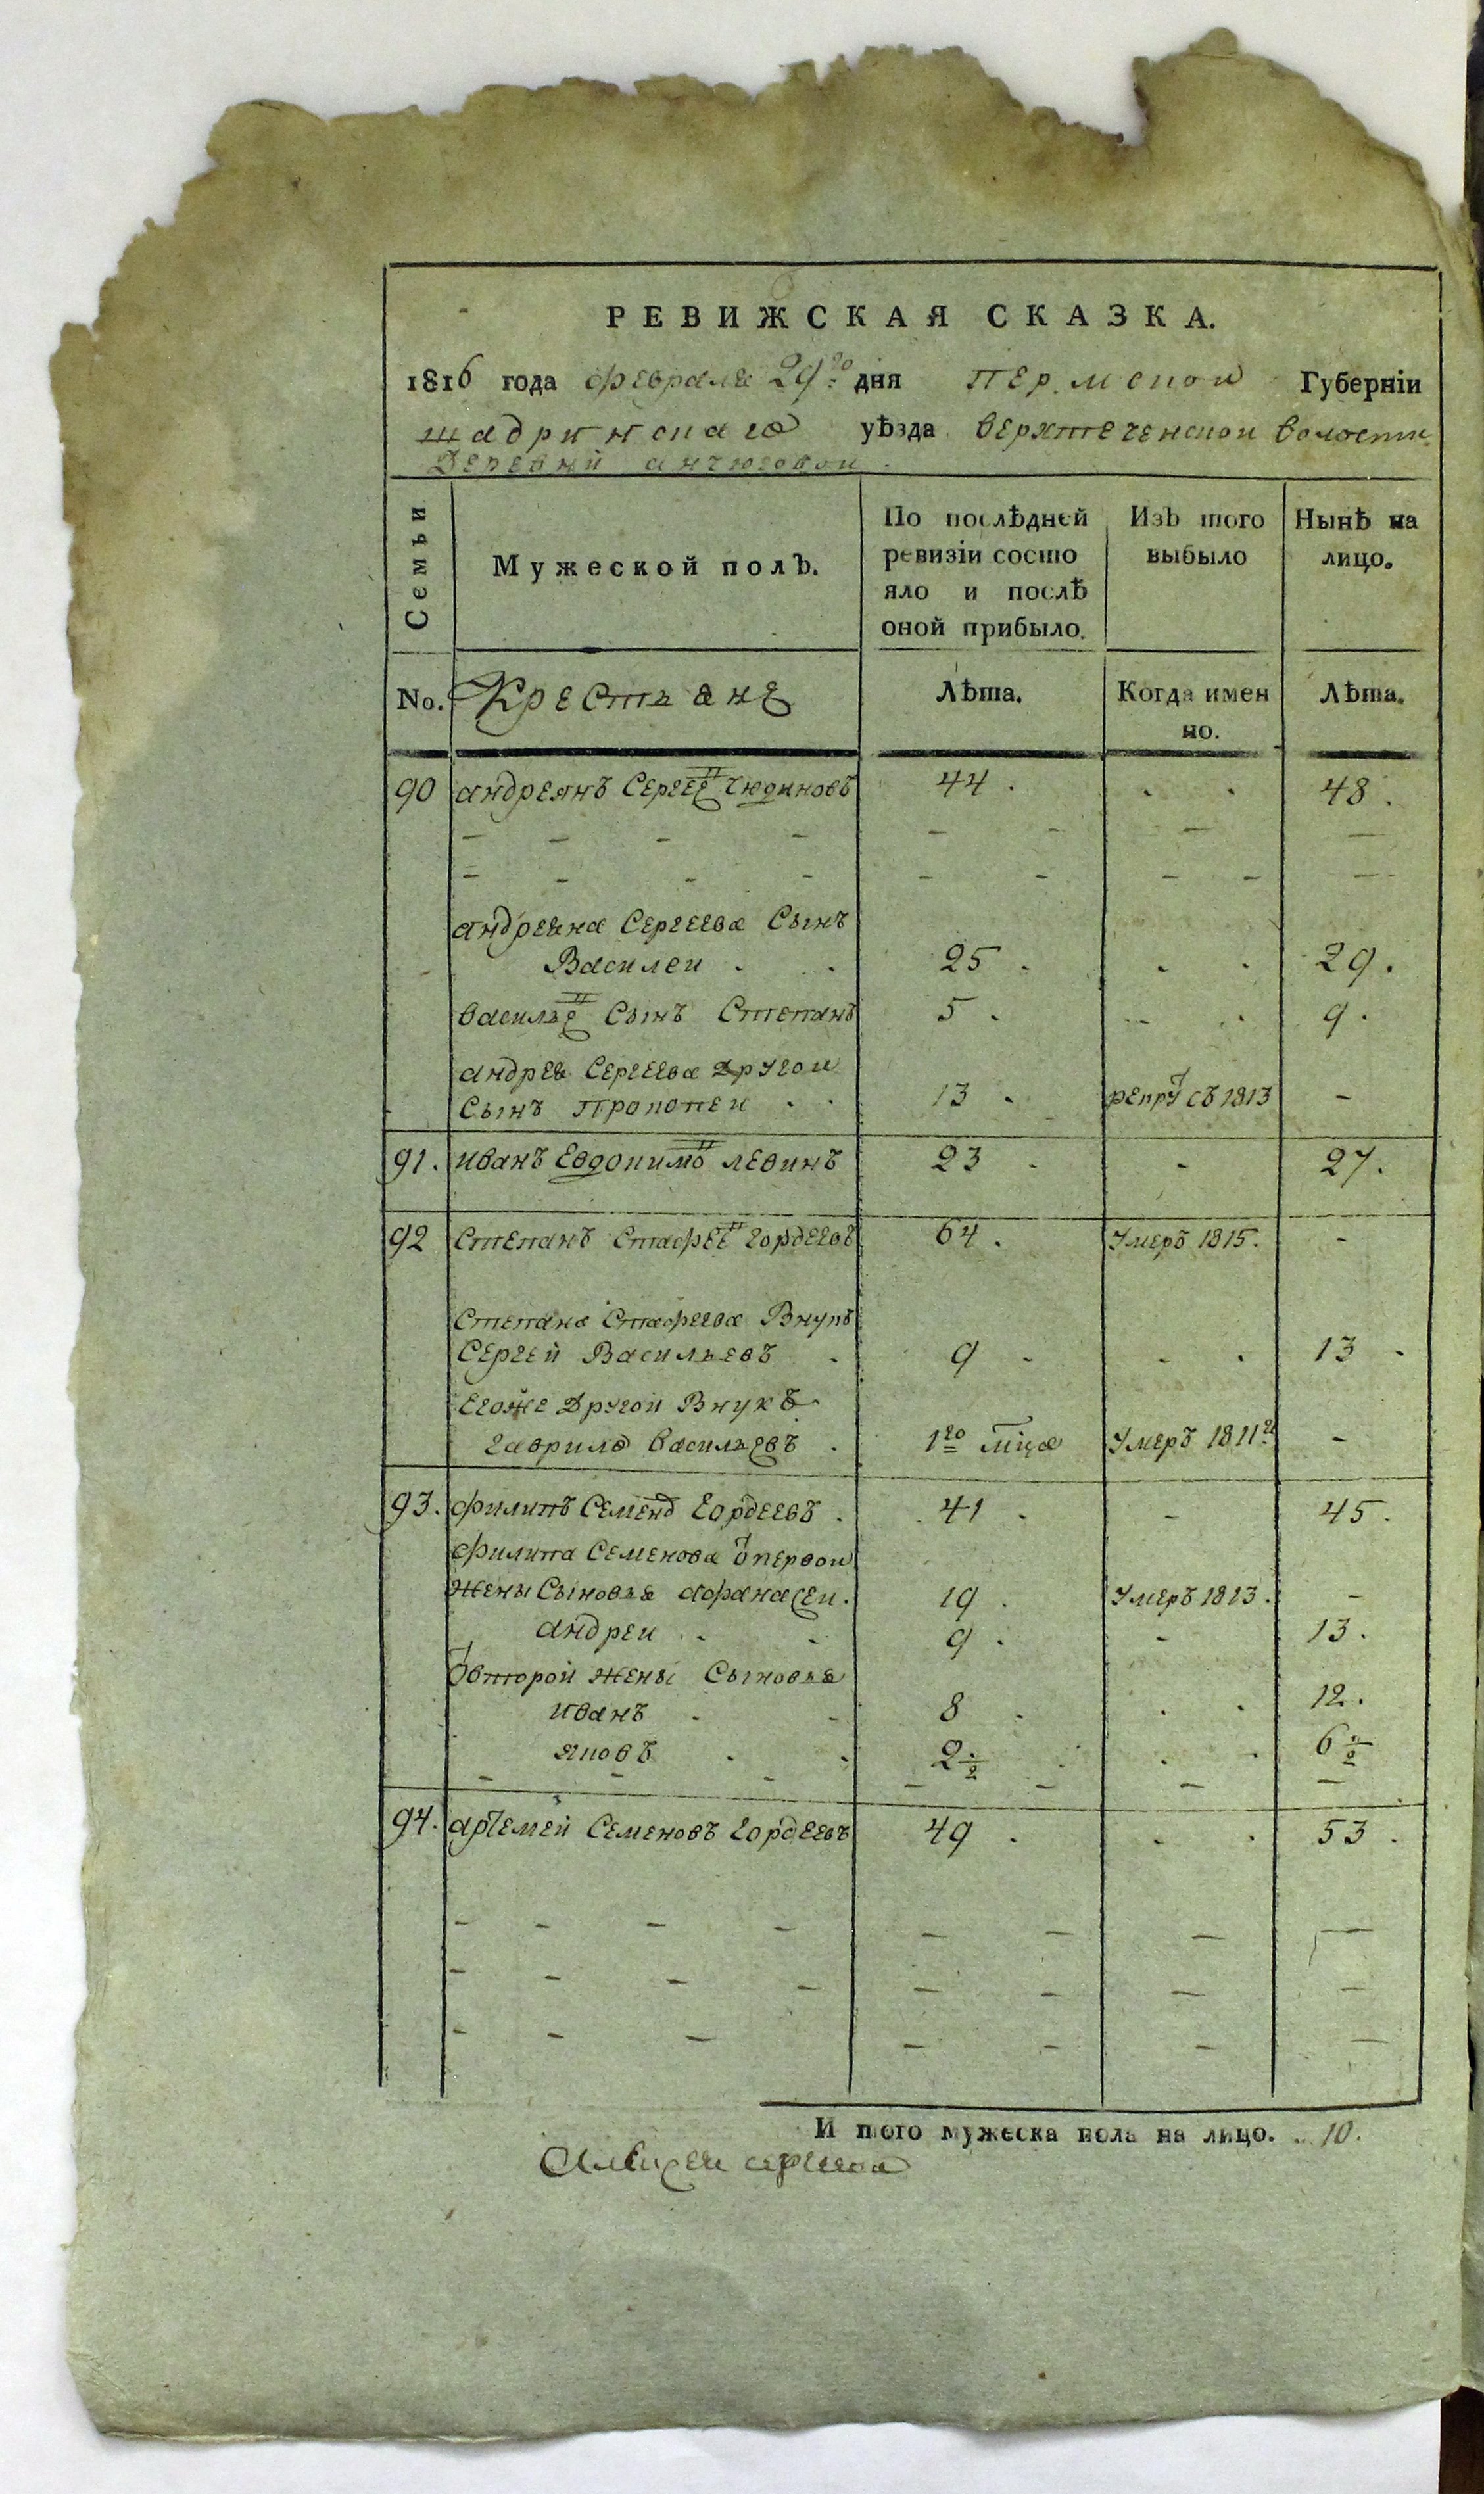 РЕВИЖСКАЯ СКАЗКА.
1816 года февраля 29го дня Пермской Губерніи
шадринскаго уѣзда верхтеченской волости
Деревни анчюговой
Семьи Мужеской полъ. По послѣдней ревизіи состояло и послѣ оной прибыло. Изъ того выбыло Нынѣ на лицо.
No. Крестьяне Лѣта. Когда именно. Лѣта.
90 андреянъ Сергеевъ Чюдиновъ 44. 48.
андреяна Сергеева Сынъ
Василеи 25 29.
васильевъ Сынъ Степанъ 5 9.
андрея Сергеева другои
Сынъ Прокопеи 13 рекрутъ съ 1813 -
91. иванъ Евдокимовъ левинъ 23 - 27.
92 Степанъ Стафеевъ гордеевъ 64. Умеръ 1815. -
Степана Стафеева Внукъ
Сергей Васильевъ 9 13
Егоже другои Внукъ
гаврило васильевъ 1го мца Умеръ 1811г -
93. филипъ Семеновъ гордеевъ 41 - 45.
филипа Семенова от первои
жены Сыновья афанасеи. 19. Умеръ 1813. -
андреи 9. - 13.
от второй жены Сыновья
иванъ 8 12.
яковъ 2½ 6½
94. артемей Семеновъ гордеевъ 49. 53.
И того мужеска пола на лицо. 10.
Алексеи сергеева